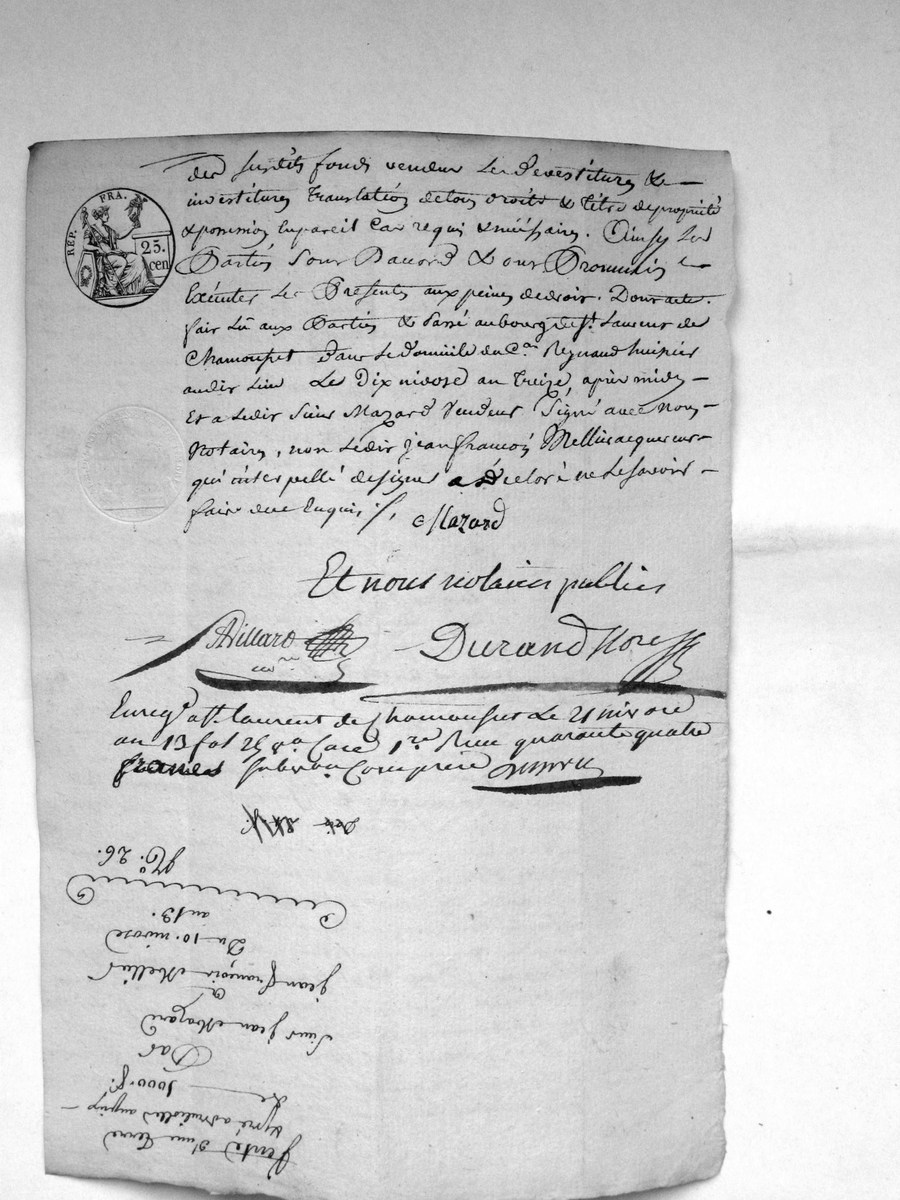 REP. FRA.
25. cen
des susdits fonds vendus les devestitures &
investitures translation de tous droits & titre de proprieté
& possession en pareil cas requis & nécessaires. Ainsy les
Parties sont Daccord & ont Promis
Exécuter les Présentes aux peines de droit. Dont acte.
fait lû aux Parties & Passé au bourg de St. Laurent de
Chamousset dans le domicile du Cen. Reynaud huissier
audit lieu Le Dix nivose an treize, après midy
Et a ledit sieur Mazard Vendeur Signé avec Nous
Notaires, non ledit jean françois Mellier acquereur
qui interpellé de signer a déclaré ne le savoir
faire de ce Enquis /. Mazard
Et nous notaires publics
Villard Durand Nore
Enregé. a St. laurent de Chamousset le 21 nivose
an 13 fol 25 vo. Case 1re. Reçu quarante quatre
francs subvon Comprise
No. 26.
Du 10. nivose
an 13.
jean françois Mellier
a
Sieur jean Mazard
Par
De 1000 f.
& pré
Vente d'une terre